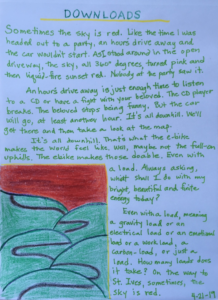 DOWNLOADS
Sometimes the sky is red. Like the time I was
headed out to a party, an hours drive away and
the car wouldn't start. As I stood around in the open
driveway, the sky, all 360 degrees, turned pink and
then liquid-fire sunset red. Nobody at the party saw it.
An hours drive away is just enough time to listen
to a CD or have a fight with your beloved. The CD player
breaks. The beloved stops being funny. But the car
will go, at least another hour. It's all downhill. We'll
get there and then take a look at the map.
It's all downhill. That's what the e-bike
makes the world feel like. Well, maybe not the full-on
uphills. The ebike makes those doable. Even with
a load. Always asking,
what shall I do with my
bright, beautiful and finite
energy today?
Even with a load, meaning
a gravity load or an
electrical load or an emotional
load or a work load, a
carbon-load, or just a
load. How many loads does
it take? On the way to
St. Ives, sometimes, the
sky is red.